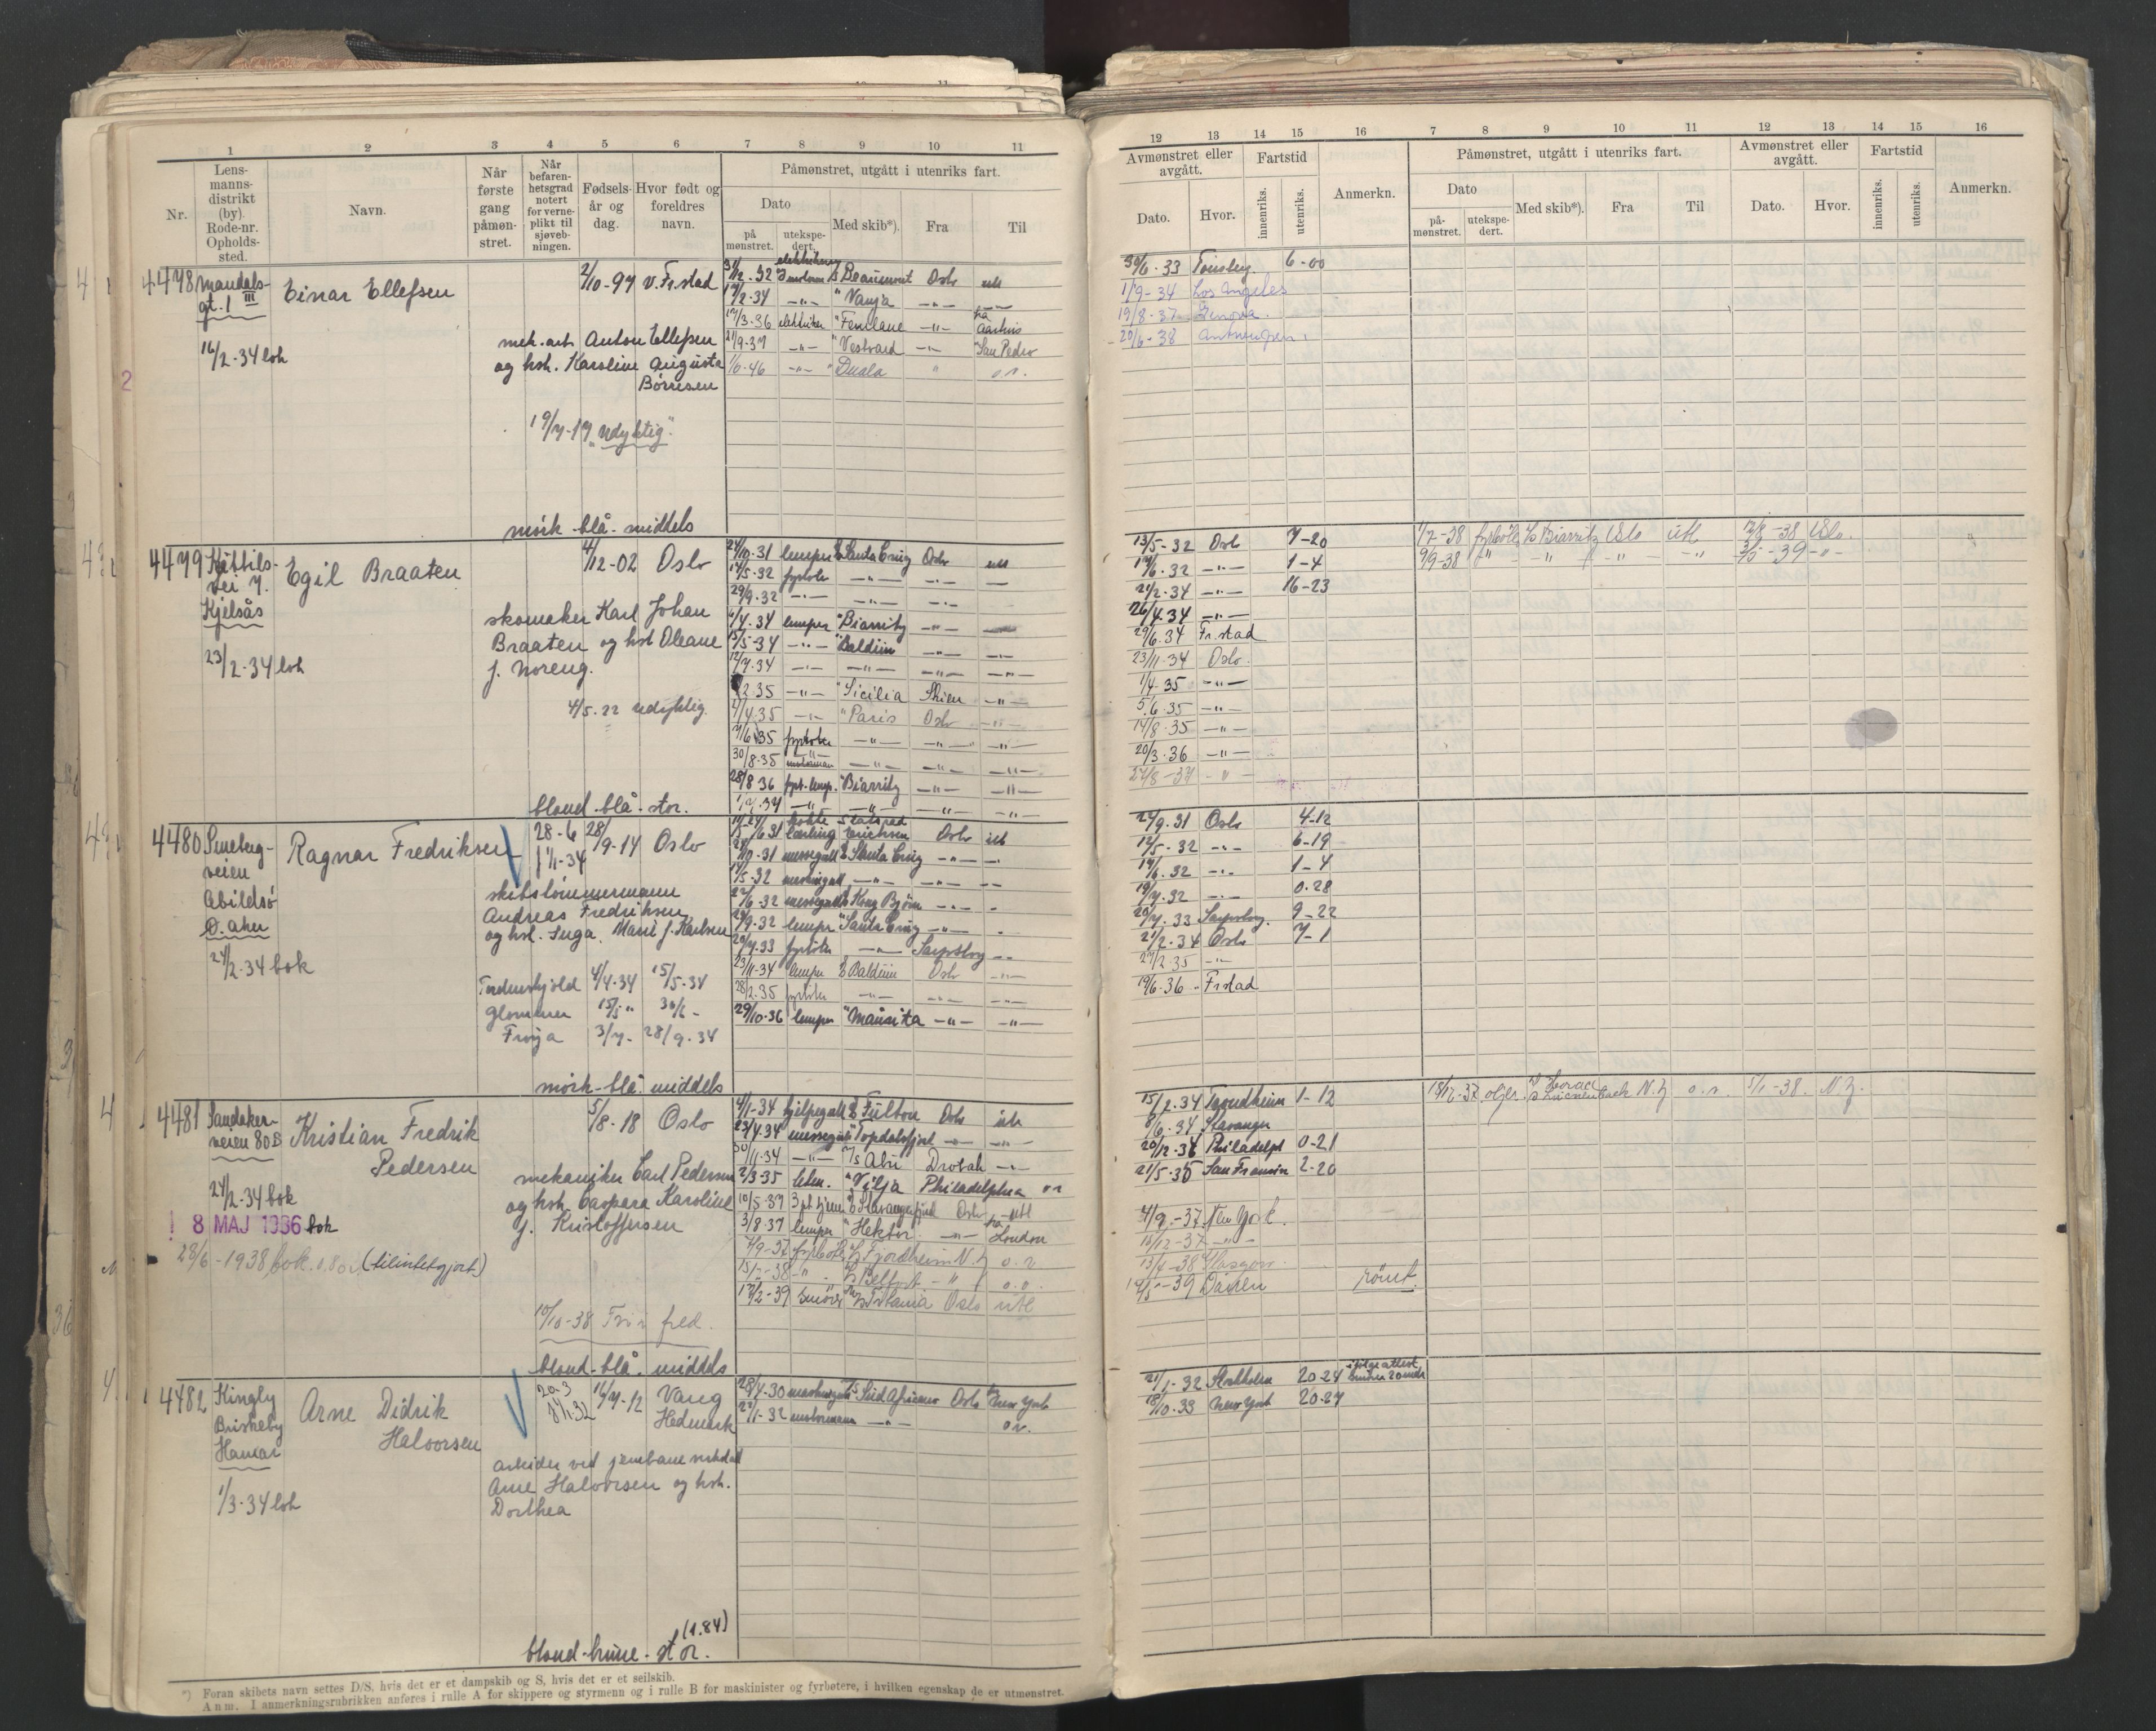 1 2 3 4 5 6 7 8 9 10 11
Nr.
Lens-
manns-
distrikt
(by).
Rode-nr.
Opholds-
sted.
Navn.
Når
første
gang
påmøn-
stret.
Når
befaren-
hetsgrad
notert
for verne-
plikt til
sjøveb-
ningen.
Fødsels-
år og
dag.
Hvor født og
foreldres
navn.
Påmønstret, utgått i utenriks fart.
Dato
på
mønstret.
utekspe-
dert.
Med skib*).
Fra
Til
4478 Mandals-
gt. 1 III
Einar Ellefsen
2/10-97 V. Fr.stad
16/2-34 loh
mek. arb. Anton Ellefsen
og hst. Karoline Augusta
Børresen
19/7-19 "Udyktig"
31/12-32 Beaumont Oslo utl
17/2-34 -"- " Vanja -"-
17/3-36 elektriker " Fernlane -"- fra Aarhus
21/9-37 -"- " Vestvard -"- "San Pedro
1/6-46 -"- " Duala " o.r.
mørk-blå-middels
4479 Kittils-
vei 7.
Kjelsås
Egil Braaten
4/12-02 Oslo
23/2-34 loh
skomaker Karl Johan
Braaten og hst Oleane
f. Noreng.
4/5-22 udyktig
24/10-31 lemper Oslo utl
14/5-32 fyrbøter -"- -"-
29/9-32 -"- -"- -"-
6/4-34 lemper "Biarritz -"-
15/5-34 -"- "Balduin -"- -"-
12/7-34 -"- -"- -"- -"-
2-35 -"- "Sicilia Skien -"-
4/4-35 -"- "Paris Oslo -"-
7/6-35 fyrbøter -"- -"- -"-
30/8-35 motorman -"- -"- -"-
28/8-36 fyrb.-lemp. "Biarritz -"- -"-
blond-blå-stor.
4480
veien
Abildsø
Ø. Aker
Ragnar Fredriksen
28-6
11/1-34
28/9-14 Oslo
24/2-34 bok
skibstømmermann
Andreas Fredriksen
og hst. Inga Marie f. Karlsen
Tordenskjold 4/4-34 15/5-34
Glommen 15/5 " 30/6 -
Frøya 3/7- 28/9-34
Oslo utl
14/5-32 -"- -"-
22/6-32 Kong Bjørn -"-
20/7-33 fyrbøter -"- Sarpsborg
23/11-34 lemper Balduin Oslo -"-
28/2-35 fyrbøter -"- -"- -"-
29/10-36 lemper "Maurita -"- -"-
mørk-blå-middels
4481 Sandaker-
veien 80B
Kristian Fredrik
Pedersen
5/8-18 Oslo
24/2-34 bok
8 MAJ 1936 bok
28/6-1938 bok (tilintetgjort)
mekaniker Carl Pedersen
og hst. Caspara Karoline
f. Kristoffersen
10/10-38 Fri i fred.
4/1-34 Fulton Oslo utl
23/4-34 "Topdalsfjord -"- -"-
30/11-34 -"- M/S Abu Drøbak -"-
2/3-35 "Vilja Philadelphia or
10/5-37 Stavangerfjord Oslo utl
3/8-37 lemper "Hektor -"- fra London
7/9-37 Fjordheim N.Y. o.r.
15/12-38 -"- Belfast -"- o.r.
17/2-39 Titania Oslo utl
blond-blå-middels
4482 Kingly
Briskeby
Hamar
Arne Didrik
Halvorsen
20.3
16/7-12 Vang
Hedmark
1/3-34 loh
arbeider ved
Arne Halvorsen og hst.
Dorthea
28/4-30 Sud Africano Oslo New York
22/1-32 motormann -"- or.
(1.84)
blond-brune-stor.
*) Foran skibets navn settes D/S, hvis det er et dampskib og S, hvis det er et seilskib.
Anm. I anmerkningsrubrikken anføres i rulle A for skippere og styrmenn og i rulle B for maskinister og fyrbøtere, i hvilken egenskap de er utmønstret.
12 13 14 15 16 7 8 9 10 11 12 13 14 15 16
Avmønstret eller
avgått.
Dato.
Hvor.
Fartstid
innenriks.
utenriks.
Anmerkn.
Påmønstret, utgått i utenriks fart.
Dato
på-
mønstret.
utekspe-
dert.
Med skib*).
Fra
Til
Avmønstret eller
avgått.
Dato.
Hvor.
Fartstid
innenriks.
utenriks.
Anmerkn.
30/6-33 Tønsberg. 6-00
1/9-34 Los Angeles
19/8-37 Genova.
20/6-38 Antwerpen.
13/5-32 Oslo 7-20
17/6-32 -"- 1-4
21/2-34 -"- 16-23
26/4-34 -"-
29/6-34 Fr.stad
23/11-34 Oslo.
1/4-35 -"-
5/6-35 -"-
14/8-35 -"-
20/3-36 -"-
27/8-37 -"-
1/7-38 Biarritz Oslo utl 12/8-38 Oslo.
9/9-38 " -"- -"- -"- 3/5-39 -"-
24/9-31 Oslo 4-12
12/5-32 -"- 6-19
17/6-32 -"- 1-4
19/7-32 -"- 0-28
20/7-33 Sarpsborg 9-22
21/2-34 Oslo 7-1
27/2-35 -"-
19/6-36 Fr.stad
15/2-34 Trondheim 1-12
8/6-34 Stavanger
20/12-34 Philadelph 0-21
21/5-35 San Francisco 2-20
4/9-37 New York.
15/12-37 -"-
13/4-38 Glasgow.
14/5-39 Dairen rømt.
18/12-37 Luckenbach N.Y. o.r. 5/1-38. N.Y.
21/1-32 Stockholm 20-24 ifølge attest
18/10-33 New York 20-27